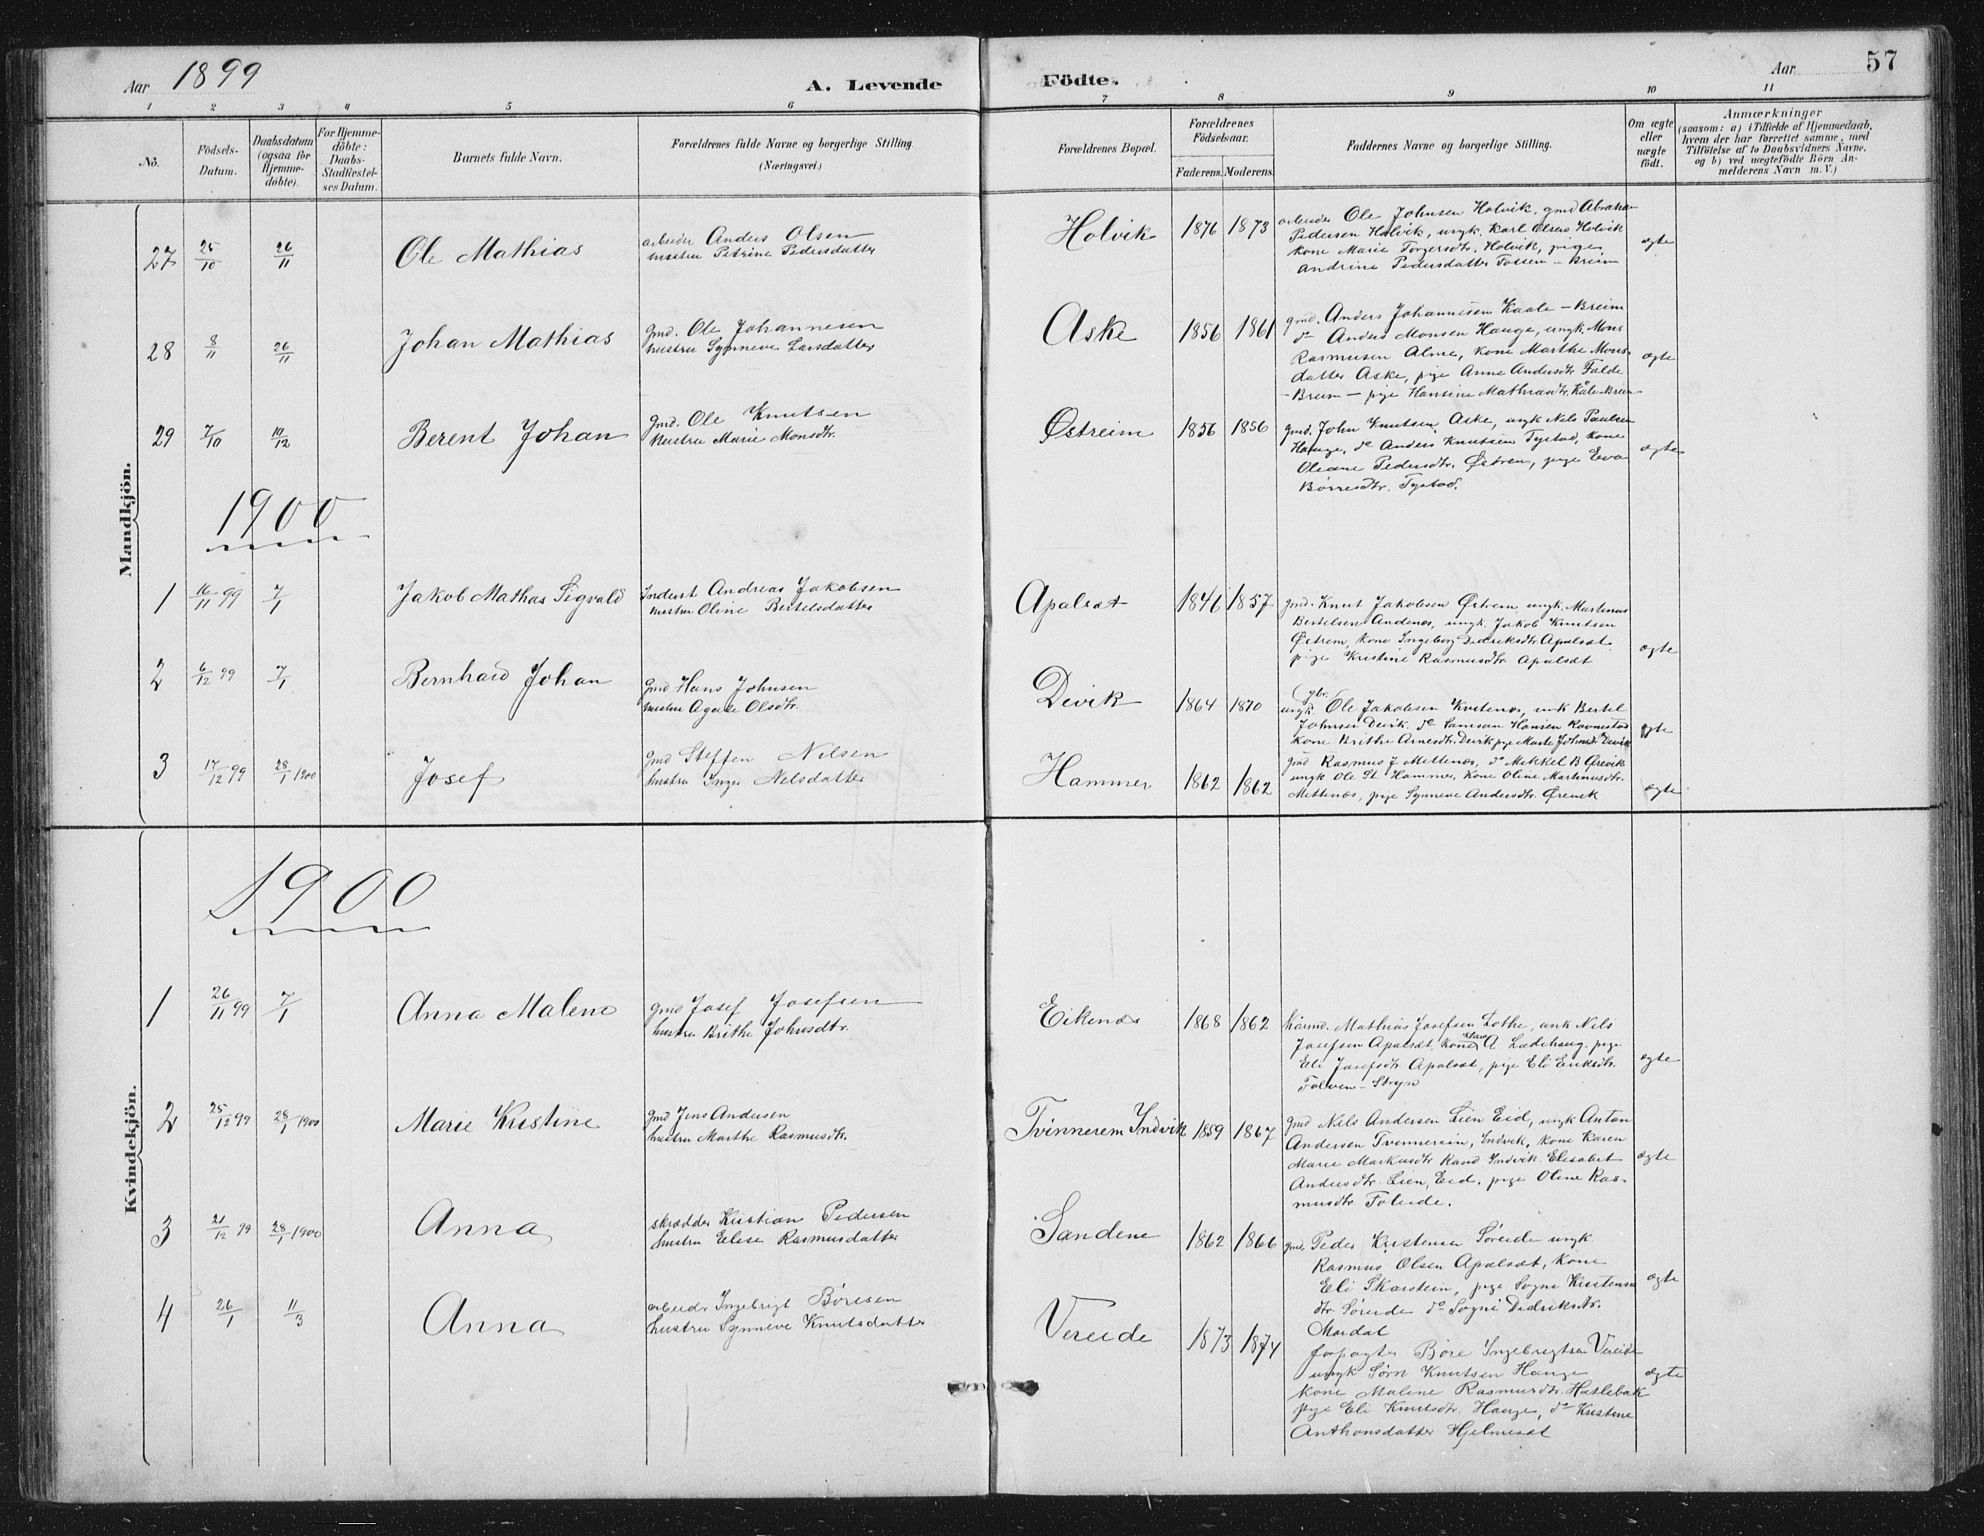 Aar 1899
A. Levende Födte.
Aar
57
1 2 3 4 5 6 7 8 9 10 11
No.
Födsels-Datum.
Daabsdatum (ogsaa for Hjemme-döbte).
For Hjemme-döbte: Daabs-Stadfæstel-ses Datum.
Barnets fulde Navn.
Forældrenes fulde Navne og borgerlige Stilling (Næringsvei.)
Forældrenes Bopæl.
Forældrenes Födselsaar.
Faderens. Moderens.
Faddernes Navne og borgerlige Stilling.
Om ægte eller uægte födt.
Anmærkninger
(saasom: a) i Tilfælde af Hjemmedaab, hvem der har forrettet samme, med Tilföielse af to Daabsvidners Navne, og b) ved uægtefödte Börn An-melderens Navn m. V.)
Mandkjön.
27 25/10 26/11 Ole Mathias
arbeider Anders Olsen
hustru Petrine Pedersdatter
Holvik 1876 1873
arbeider Ole Johnsen Holvik, gmd Abraham
Pedersen Holvik, ungk. Karl Olsens Holvik
kone Marie Torgersdtr. Holvik, pige
Andrine Pedersdatter Fossem - Breim
ægte
28 8/11 26/11 Johan Mathias
gmd. Ole Johannesen
hustru Synneve Larsdatter
Aske 1856 1861
gmd. Anders Johannesen Kaale - Breim
do Anders Monsen Hauge, ungk. Mons
Rasmusen Alme, kone Marthe Mons-
datter Aske, pige Anne Andersdtr Falde
- Breim - pige Hansine Mathiasdtr. Kåle-Breim
ægte
29 7/10 10/12 Berent Johan
gmd. Ole Knutsen
hustru Marie Monsdtr.
Østreim 1856 1856
gmd. John Knutsen Aske, ungk Nils Paulsen
Hauge, do Anders Knutsen Tystad, kone
Oleane Pedersdtr. Østrem, pige Eva
Børresdtr. Tystad.
ægte
1900
1 16/11 99 7/1 Jakob Mathas Sigvald
Inderst Andreas Jakobsen
hustru Oline Bertelsdatter
Apalsæt 1846 1857
gmd. Knut Jakobsen Østrem ungk. Martinus
Bertelsen Andenæs, ungk. Jakob Knutsen
Østrem, kone Ingeborg Didriksdtr Apalsæt
pige Kristine Rasmusdtr. Apalsæt
ægte
2 6/12 99 7/1 Bernhard Johan
gmd Hans Johnsen
hustru Agate Olsdtr.
Devik 1864 1870
gbr.
ungk. Ole Jakobsen Kvitenæs, unk Bertel
Johnsen Devik, do Samson Hansen Ravnestad
kone Brithe Arnesdtr. Devik pige Marte Johnsdtr Devik
ægte
3 17/12 99 28/1 1900 Josef
gmd Steffen Nilsen
hustru Inger Nelsdatter
Hammer 1862 1862
gmd Rasmus J Mettenæs, do Mikkel B Ørevik
ungk Ole St. Hammer, kone Oline Martinusdtr.
Mettenæs, pige Synneve Andersdtr. Ørevik
ægte
Kvindekjön.
1900
1 26/11 99 7/1 Anna Malene
gmd Josef Josefsen
hustru Brithe Johnsdtr.
Eikenæs 1868 1862
kaarmd. Mathias Josefsen Lothe, unk Nils
Josefsen Apalsæt, kone A Ladehaug pige
Eli Josefsdtr Apalsæt, pige Eli Eriksdtr.
Folven - Stryn
ægte
2 25/12 99 28/1 1900 Marie Kristine
gmd Jens Andersen
hustru Marthe Rasmusdtr.
Tvinnerem Indvik 1859 1867
gmd Nils Andersen Lien Eid, ungk Anton
Andersen Tvinnereim, Indvik, kone Karen
Marie Markusdtr Rand Indvik. Elisabet
Andersdtr. Lien, Eid. pige Oline Ras-
musdtr Foleide.
ægte
3 21/12 99 28/1 1900 Anna
skrædder Kristian Pedersen
hustru Elise Rasmusdatter
Sandene 1862 1866
gmd. Peder Kristensen Søreide ungk
Rasmus Olsen Apalsæt, kone
Eli Skarstein, pige Sogne Kristens-
dtr Søreide do Sogni Didriksdtr.
Mardal
ægte
4 26/1 11/3 Anna
arbeidr Ingebrigt Børesen
hustru Synneve Knutsdatter
Vereide 1873 1874
forpagter Børe Ingebrigtsen Vereide
ungk Sørn Knutsen Hauge
kone Malene Rasmusdtr. Hatlebak
pige Eli Knutsdtr. Hauge, do Kristine
Anthonsdatter Hjelmesæt
ægte